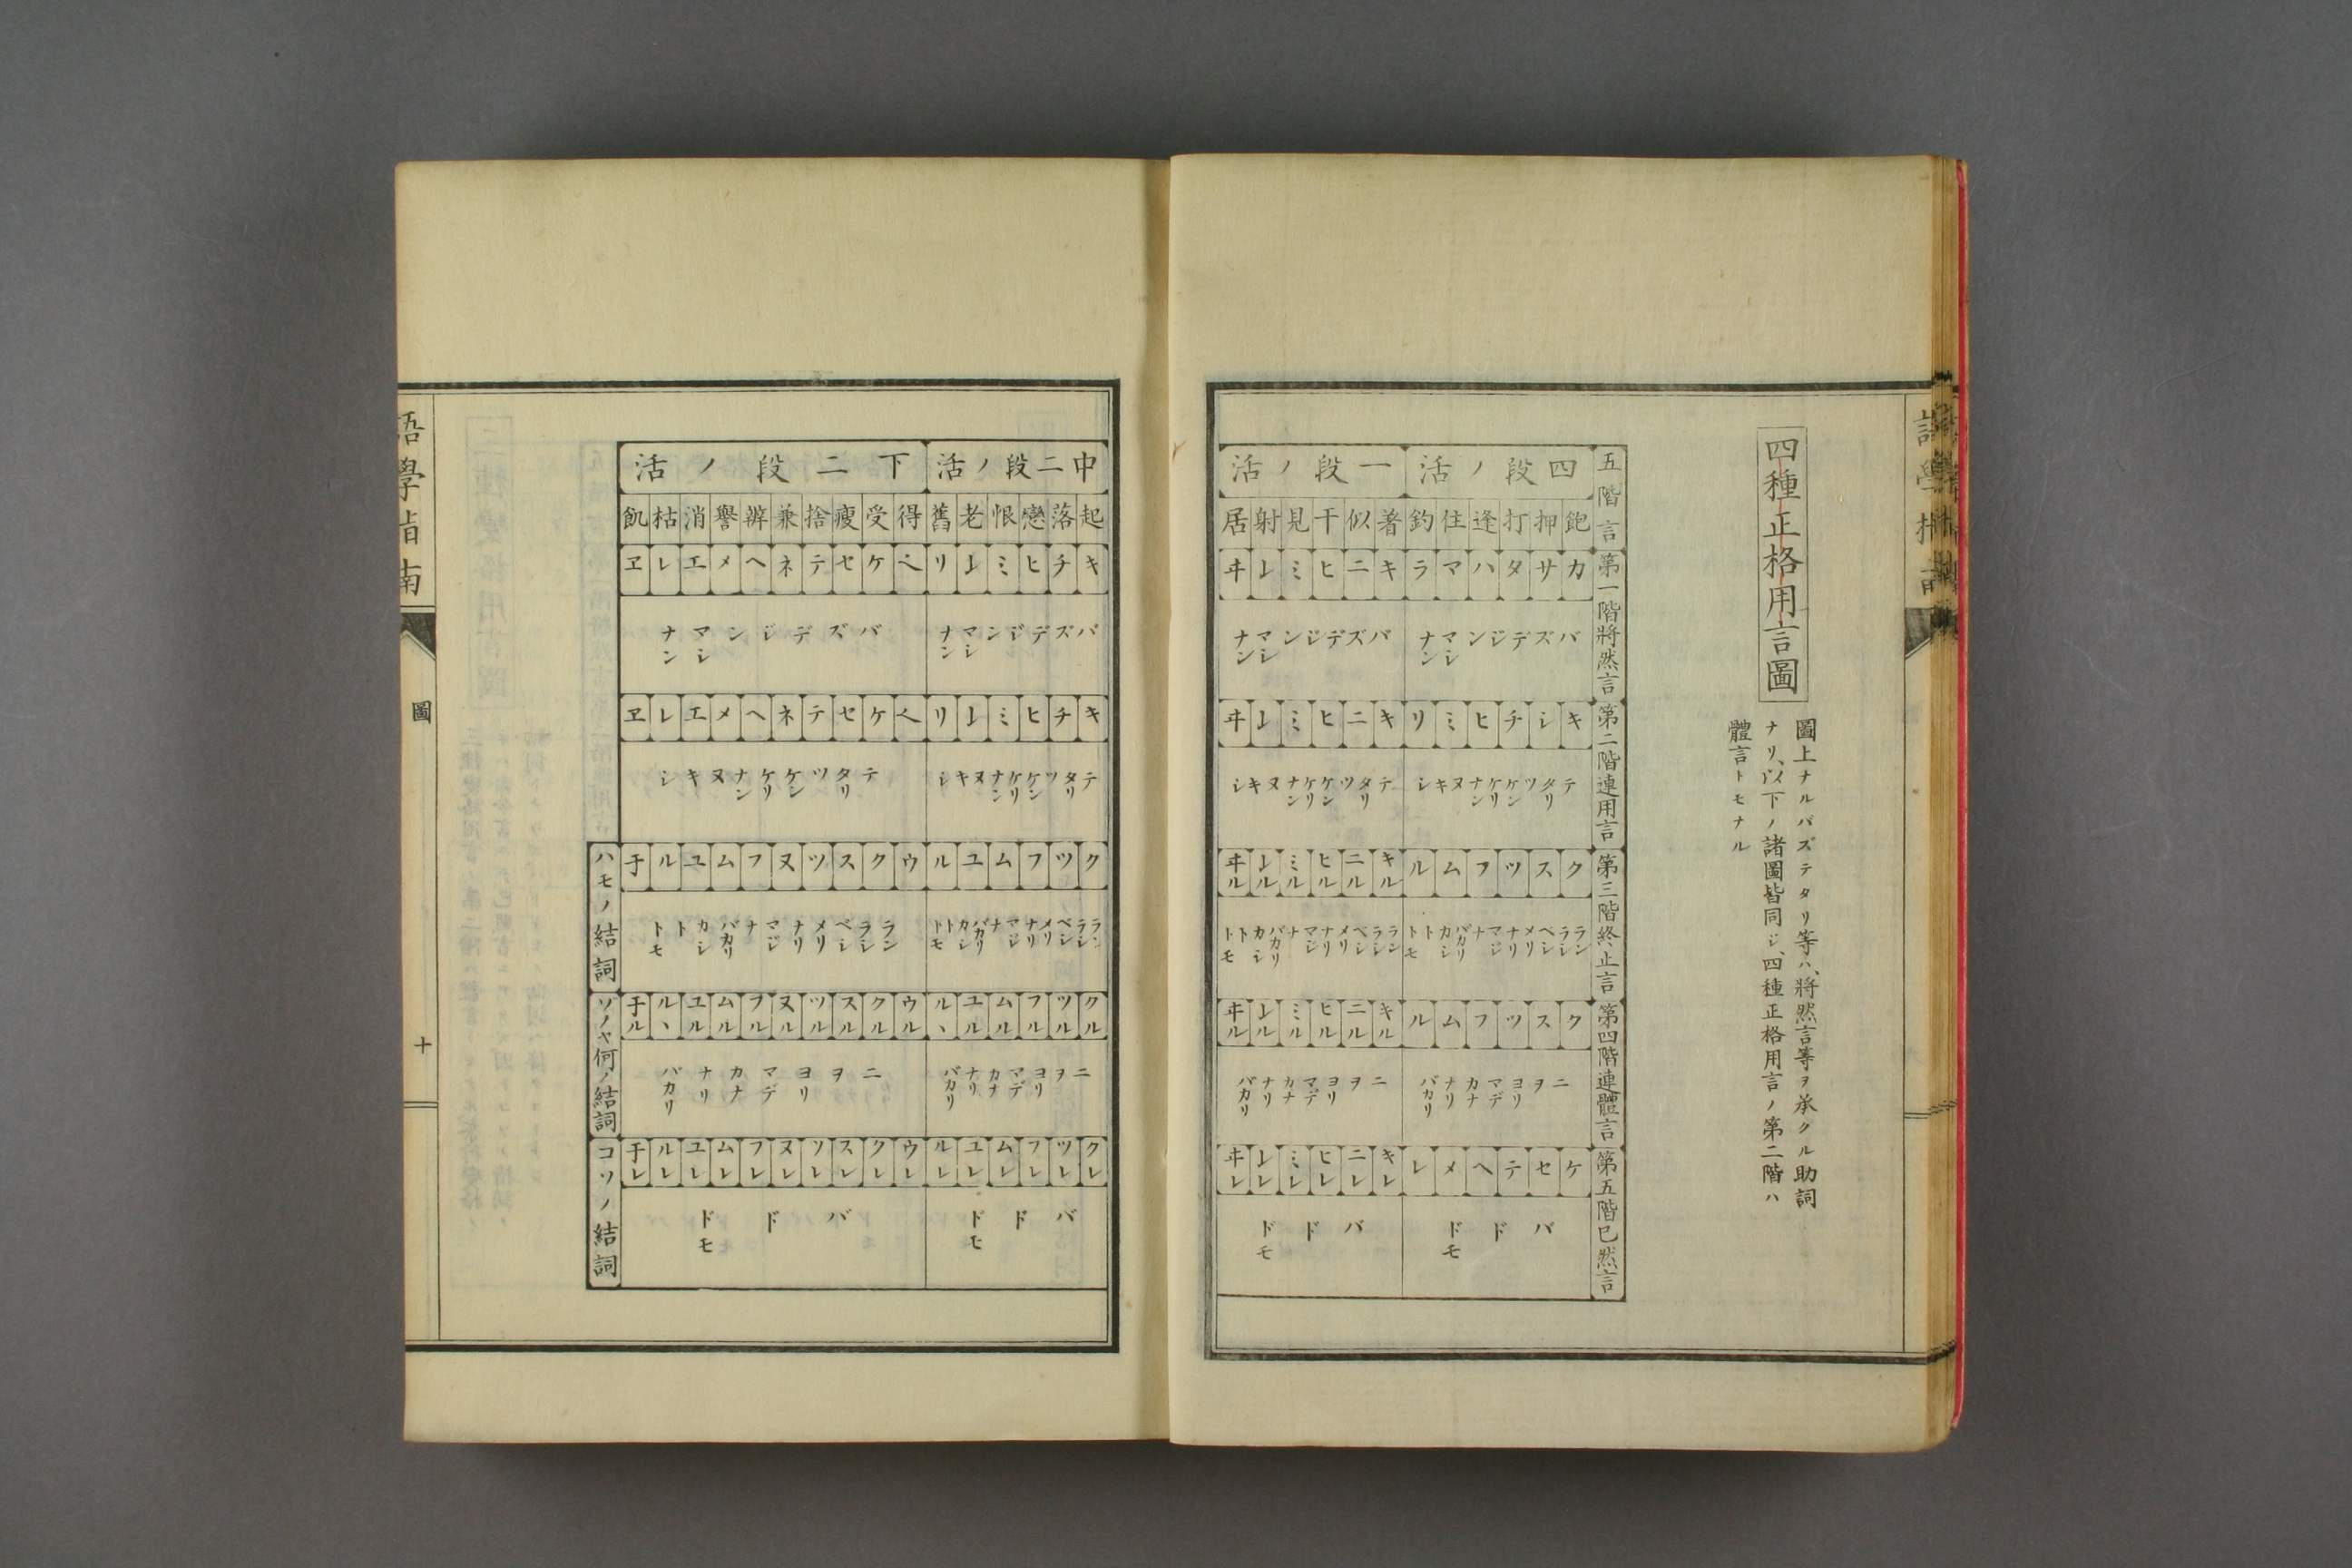 四種正格用言圖
圖上ナルバズテタリ等ハ、將然言等ヲ承クル助詞
ナリ、以下ノ諸圖皆同ジ、四種正格用言ノ第二階ハ
體言トモナル
五階言
四段ノ活
一段ノ活
飽押打逢住釣著似干見射居
第一階將然言
カサタハマラキニヒミ𛄠ヰ
バ ズ デ ジ ン マシ ナン
バ ズ デ ジ ン マシ ナン
第二階連用言
キシチヒミリキニヒミ𛄠ヰ
テ タリ ツ ケン ケリ ナン ヌ キ シ
テ タリ ツ ケン ケリ ナン ヌ キ シ
第三階終止言
ク ス ツ フ ム ル キル ニル ヒル ミル 𛄠ル ヰル
ラン ラシ ベシ メリ ナリ マジ ナ バカリ カシ ト トモ
ラン ラシ ベシ メリ ナリ マジ ナ バカリ カシ ト トモ
第四階連體言
ク ス ツ フ ム ル キル ニル ヒル ミル 𛄠ル ヰル
ニ ヲ ヨリ マデ カナ ナリ バカリ
ニ ヲ ヨリ マデ カナ ナリ バカリ
第五階已然言
ケ セ テ ヘ メ レ キレ ニレ ヒレ ミレ 𛄠レ ヰレ
バ ド ドモ
バ ド ドモ
中二段ノ活
下二段ノ活
起落戀恨老舊得受瘦捨兼辨譽消枯飢
キチヒミ𛄠リ ケセテネヘメエレヱ
バ ズ デ ジ ン マシ ナン
バ ズ デ ジ ン マシ ナン
キチヒミ𛄠リ ケセテネヘメエレヱ
テ タリ ツ ケン ケリ ナン ヌ キ シ
テ タリ ツ ケン ケリ ナン ヌ キ シ
ク ツ フ ム ユ ル ウ ク ス ツ ヌ フ ム ユ ル 于
ハモノ結詞
ラン ラシ ベシ メリ ナリ マジ ナ バカリ カシ ト トモ
ラン ラシ ベシ メリ ナリ マジ ナ バカリ カシ ト トモ
クル ツル フル ムル ユル ルヽ ウル クル スル ツル ヌル フル ムル ユル ルヽ 于ル
ソノヤ何ノ結詞
ニ ヲ ヨリ マデ カナ ナリ バカリ
ニ ヲ ヨリ マデ カナ ナリ バカリ
クレ ツレ フレ ムレ ユレ ルレ ウレ クレ スレ ツレ ヌレ フレ ムレ ユレ ルレ 于レ
コソノ結詞
バ ド ドモ
バ ド ドモ
語學指南
圖
十